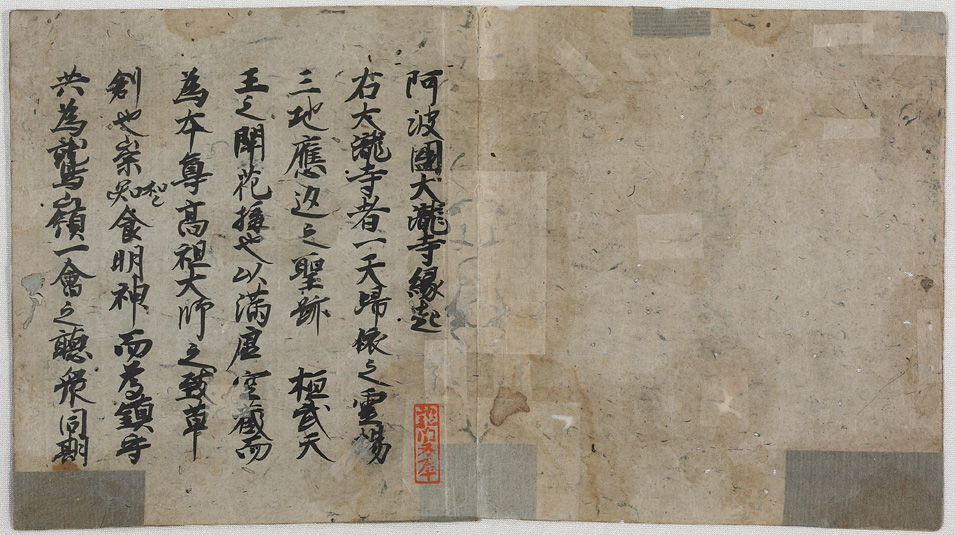 阿波國大瀧寺縁起
右大瀧寺者一天歸依之霊場
三地應迹之聖跡 桓武天
王之開花搆也以満虚空蔵而
為本尊高祖大師之

草
創也崇 食明神而為鎮守
共為鷲嶺一會之聴衆同期